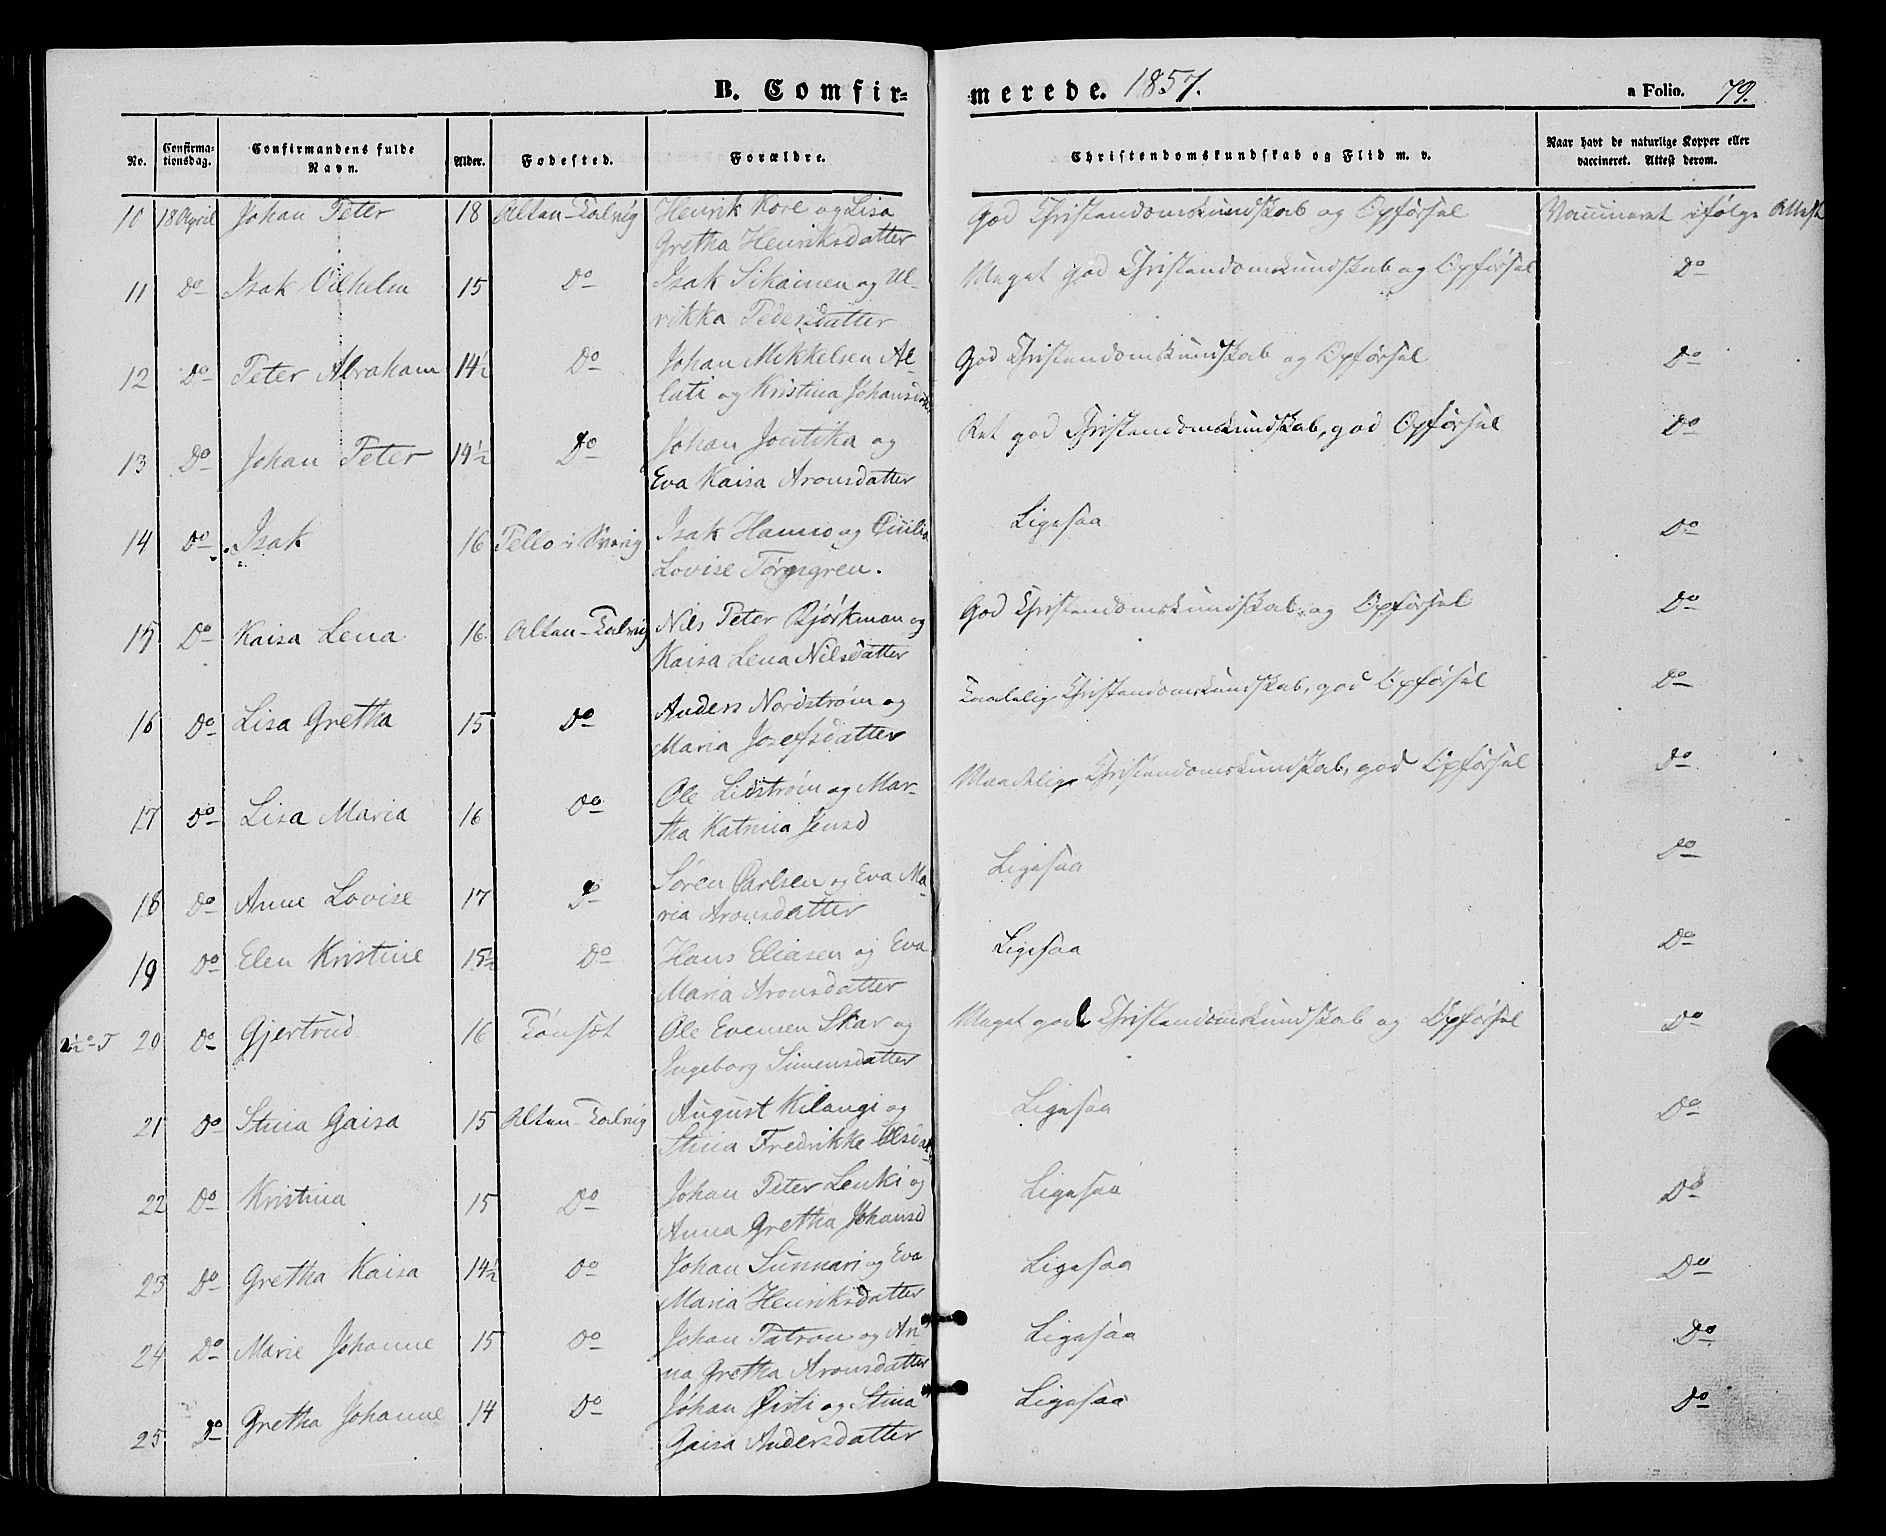 B. Comfirmerede. 1857. a Folio. 79.
No. Confirmationsdag. Confirmandens fulde Navn. Alder. Fødested. Forældre. Christendomskundskab og Flid m. v. Naar havt de naturlige Kopper eller vaccineret. Attest derom.
10 18 April Johan Peter 18 Alten-Talvig Henrik Kore og Lisa God Christendomskundskab og Opførsel Vaccineret ifølge Attest
Gretha Henriksdatter
11 Do Isak Vilhelm 15 Do Isak Sikainen og Ul- Meget god Christendomskundskab og Opførsel Do
rikka Pedersdatter
12 Do Peter Abraham 14½ Do Johan Mikkelsen Al- God Christendomskundskab og Opførsel Do
lati og Kristina Johansdtr
13 Do Johan Peter 14½ Do Johan og Ret god Christendomskundskab, god Opførsel Do
Eva Kaisa Aronsdatter
14 Do Isak 16 Pello i Sverig Isak og Cicilia Ligesaa Do
Lovise
15 Do Kaisa Lena 16 Alten-Talvig Nils Peter Bjørkman og God Christendomskundskab og Opførsel Do
Kaisa Lena Nilsdatter
16 Do Lisa Gretha 15 Do Anders Nordstrøm og Taalelig Christendomskundskab, god Opførsel Do
Maria Josefsdatter
17 Do Lisa Maria 16 Do Ole Lidstrøm og Mar- Maadelig Christendomskundskab, god Opførsel Do
tha Katrina Jensd
18 Do Anne Lovise 17 Do Søren Carlsen og Eva Ma- Ligesaa Do
ria Aronsdatter
19 Do Elen Kristine 15½ Do Hans Eliasen og Eva Ligesaa Do
Maria Aronsdatter
20 Do Gjertrud 16 Tønset Ole Evensen Skar og Meget god Christendomskundskab og Opførsel Do
Ingeborg Simensdatter
21 Do Stina Gaisa 15 Alten-Talvig August Kilangi og Ligesaa Do
Stina Fredrikke Olsdat
22 Do Kristina 15 Do Johan Peter Lenki og Ligesaa Do
Anna Gretha Johansd
23 Do Gretha Kaisa 14½ Do Johan Sunnari og Eva Ligesaa Do
Maria Henriksdatter
24 Do Marie Johanne 15 Do Johan Patron og An Ligesaa Do
na Gretha Aronsdatter
25 Do Gretha Johanne 14 Do Johan Øisti og Stina Ligesaa Do
Gaisa Andersdatter